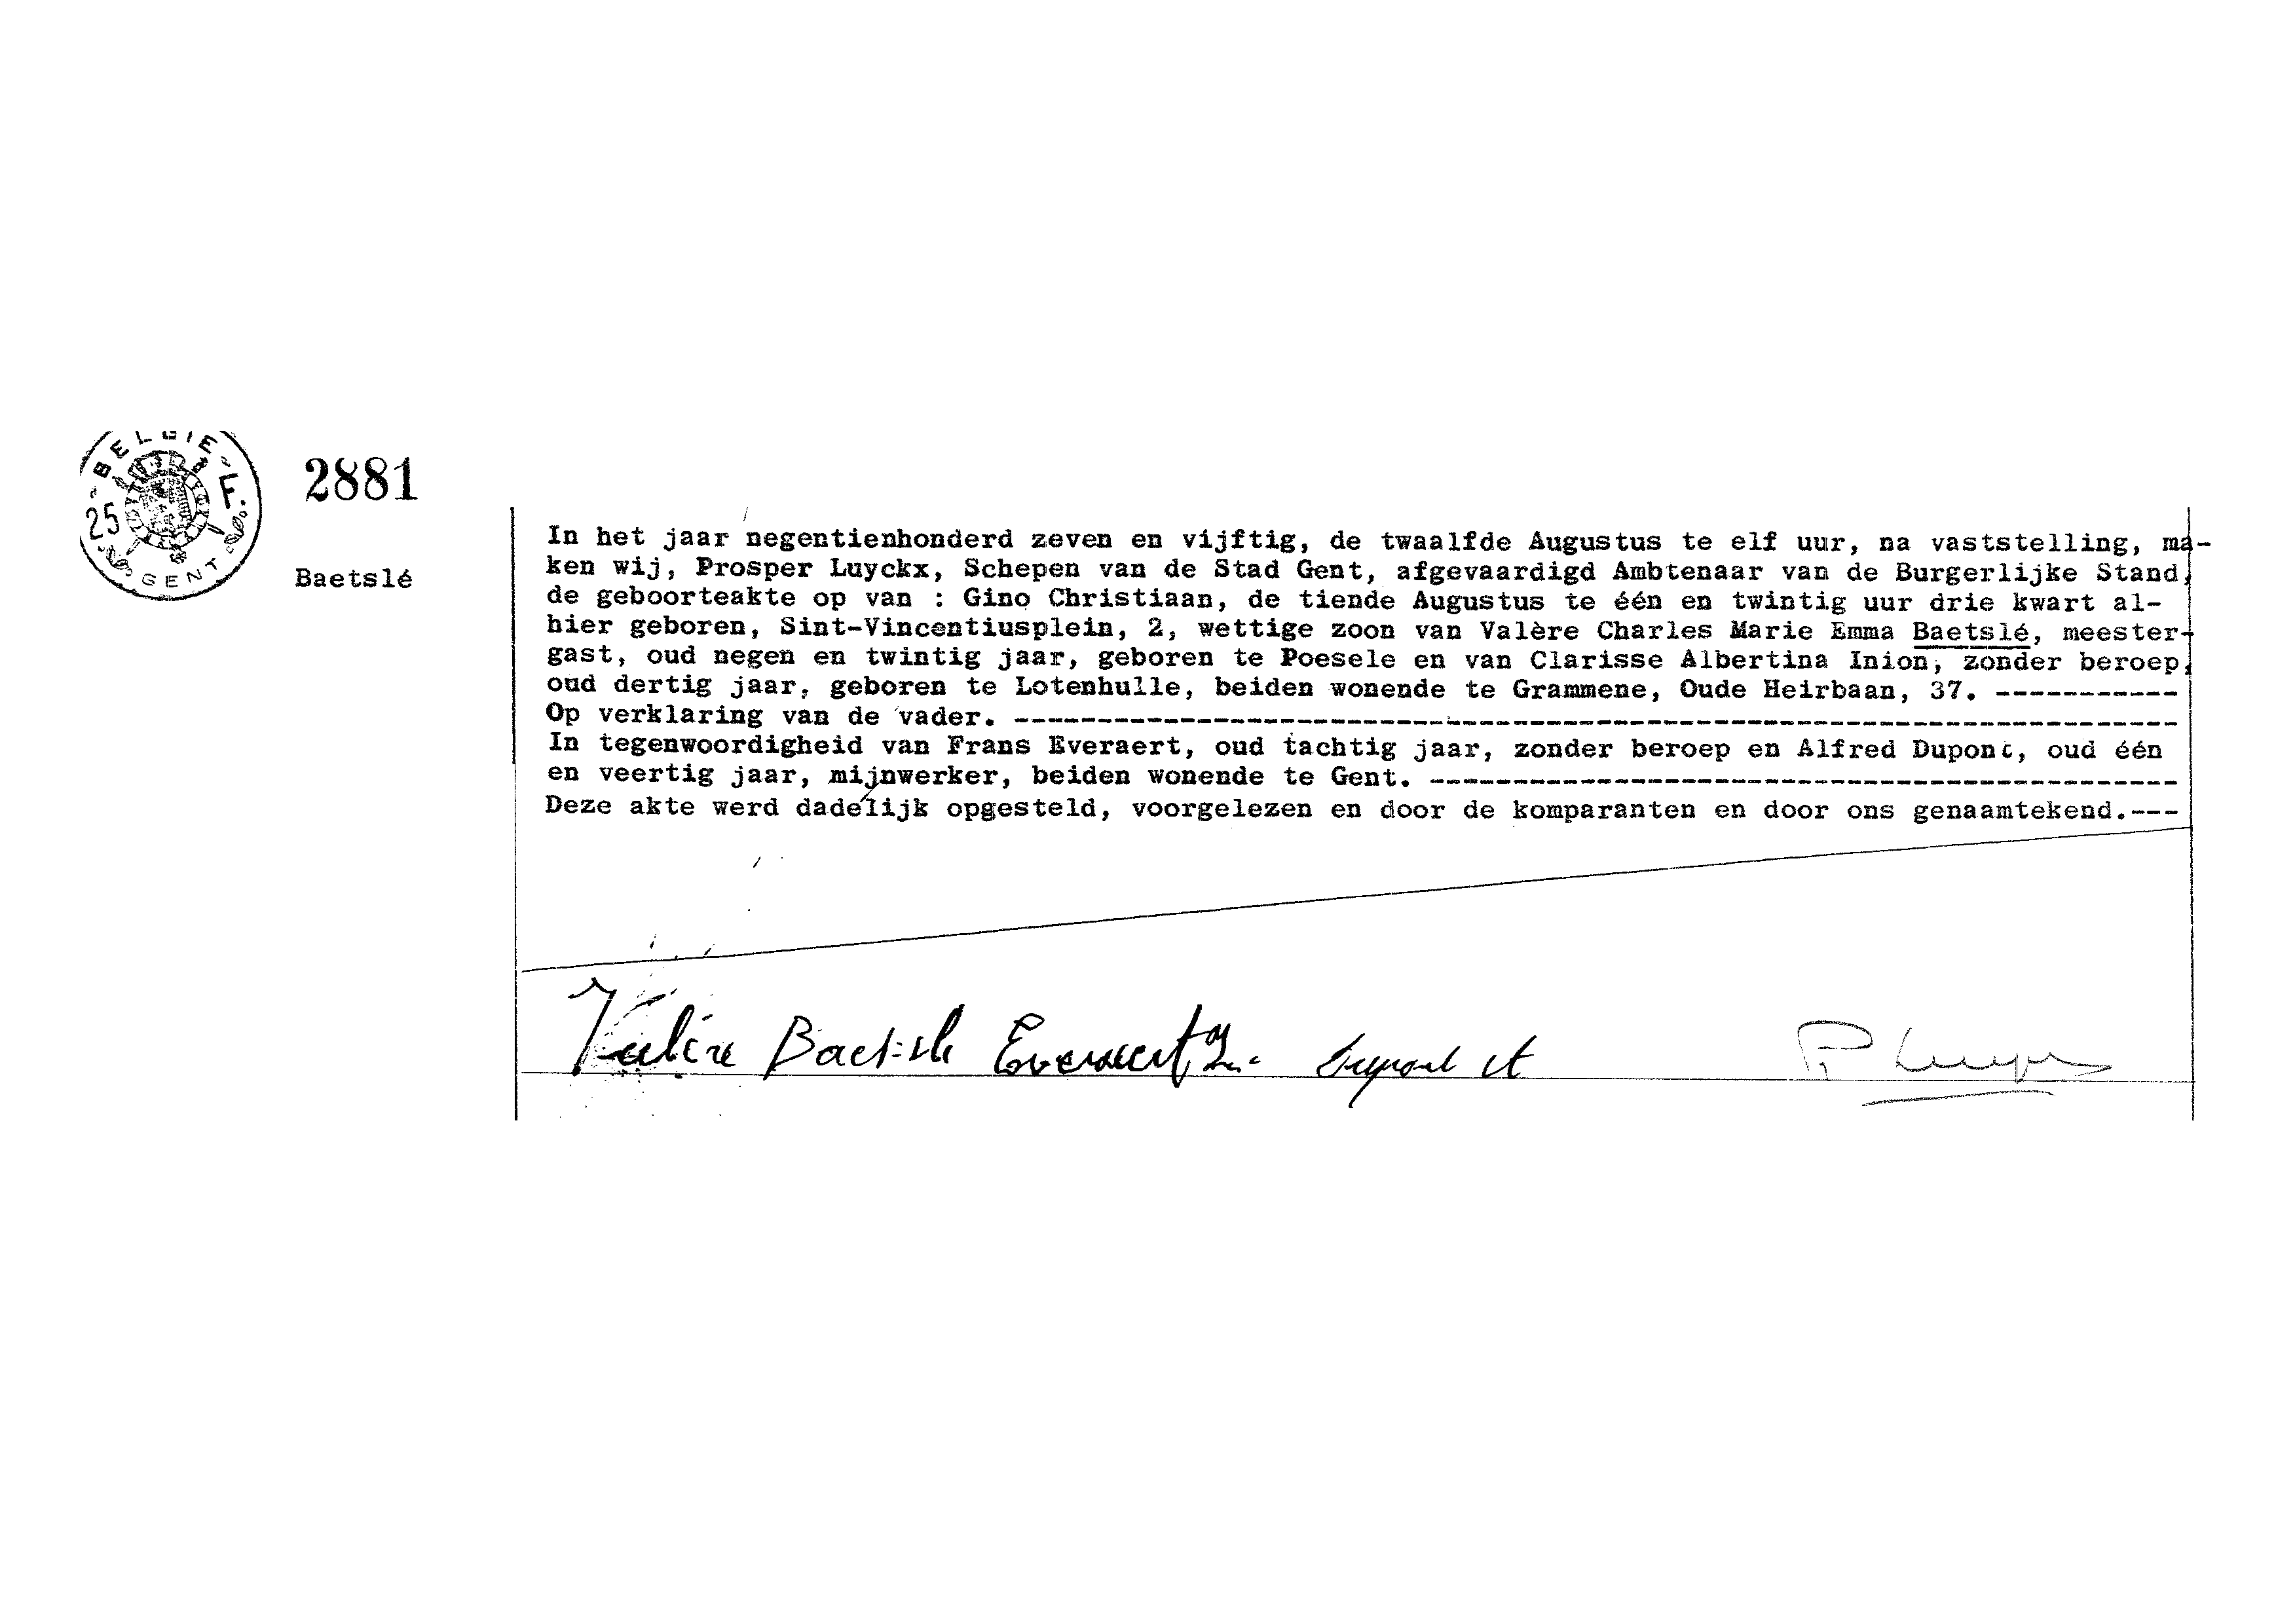 BELGIE
25 F.
GENT
2881
Baetslé
In het jaar negentienhonderd zeven en vijftig, de twaalfde Augustus te elf uur, na vaststelling, ma-
ken wij, Prosper Luyckx, Schepen van de Stad Gent, afgevaardigd Ambtenaar van de Burgerlijke Stand,
de geboorteakte op van : Gino Christiaan, de tiende Augustus te één en twintig uur drie kwart al-
hier geboren, Sint-Vincentiusplein, 2, wettige zoon van Valère Charles Marie Emma Baetslé, meester-
gast, oud negen en twintig jaar, geboren te Poesele en van Clarisse Albertina Inion, zonder beroep,
oud dertig jaar, geboren te Lotenhulle, beiden wonende te Grammene, Oude Heirbaan, 37. -----------
Op verklaring van de vader. ----------------------------------------------------------------------
In tegenwoordigheid van Frans Everaert, oud tachtig jaar, zonder beroep en Alfred Dupont, oud één
en veertig jaar, mijnwerker, beiden wonende te Gent. ---------------------------------------------
Deze akte werd dadelijk opgesteld, voorgelezen en door de komparanten en door ons genaamtekend.---
Valère Baetslé Everaert Dupont P.